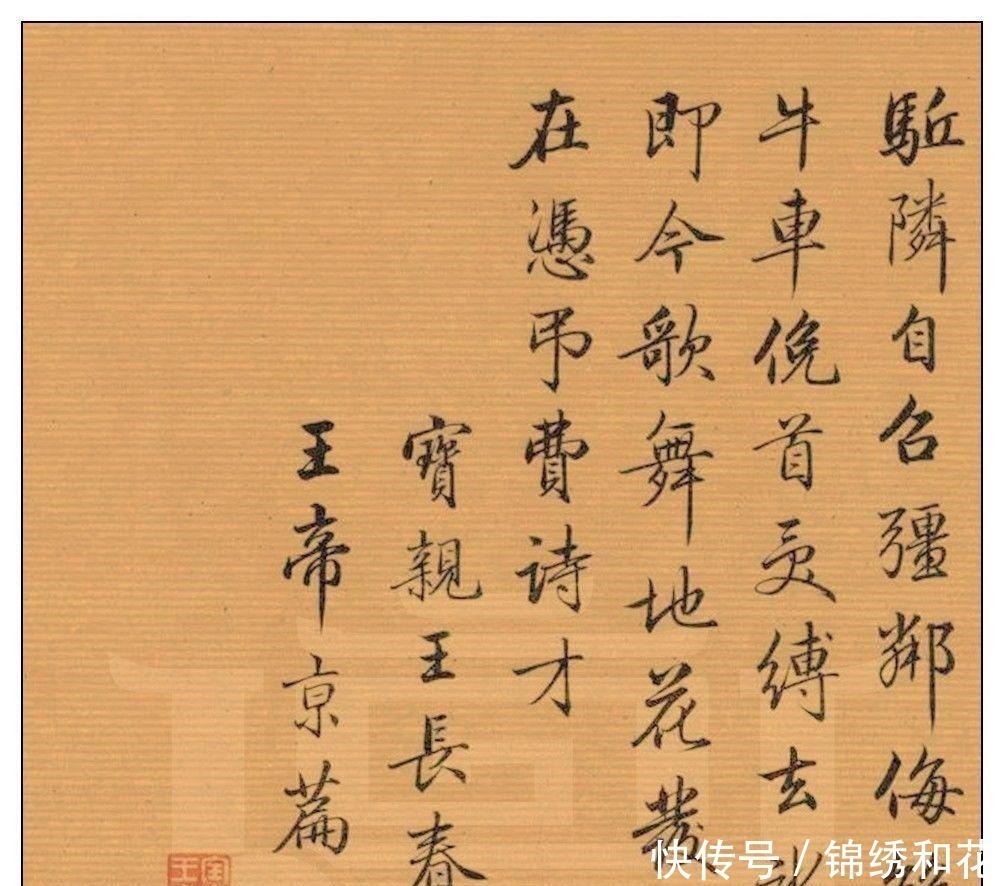 駈隣自召彊鄰侮
牛車俛首受縛去
即今歌舞地花發
在憑弔費詩才
寶親王長春
王帝京篇
快传号 / 锦绣和花